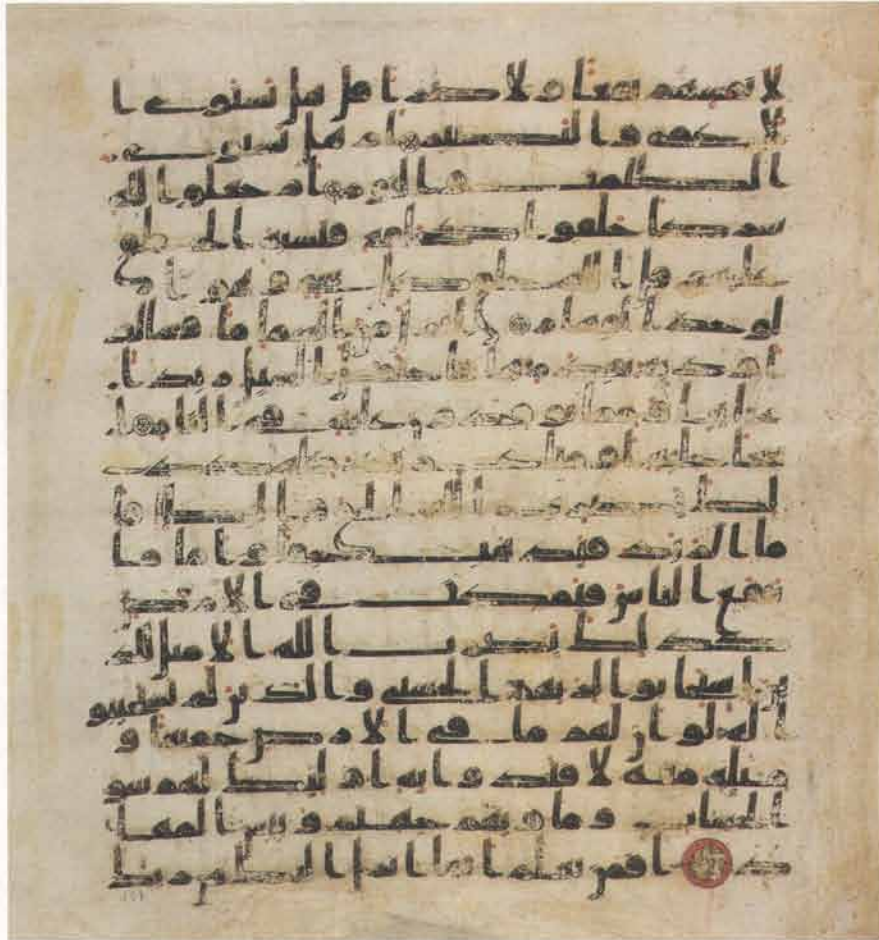 لا نفسهم نفعا ولا ضرا قل هل يستوى ا
لا عمى والبصير ام هل تستوى
الظلمت والنور ام جعلوا لله
شركا خلقوا كخلقه فتشبه الخلق
عليهم قل الله خلق كل شى وهو ا
لوحد القهر انزل من السما ما فسالت
اودية بقدرها فاحتمل السيل زبدا
رابيا ومما يوقدون عليه فى النار ابتغا
حلية او متع زبد مثله كذ
لك يضرب الله الحق والبطل فا
ما الزبد فيذهب جفا واما ما
ينفع الناس فيمكث فى الارض
كذلك يضرب الله الامثل للذ
ين استجابوا لربهم الحسنى والذين لم يستجيبو
ا له لو ان لهم ما فى الارض جميعا و
مثله معه لافتدوا به اوليك لهم سو
الحساب وماويهم جهنم وبيس المها
د افمن يعلم انما انزل اليك من ر